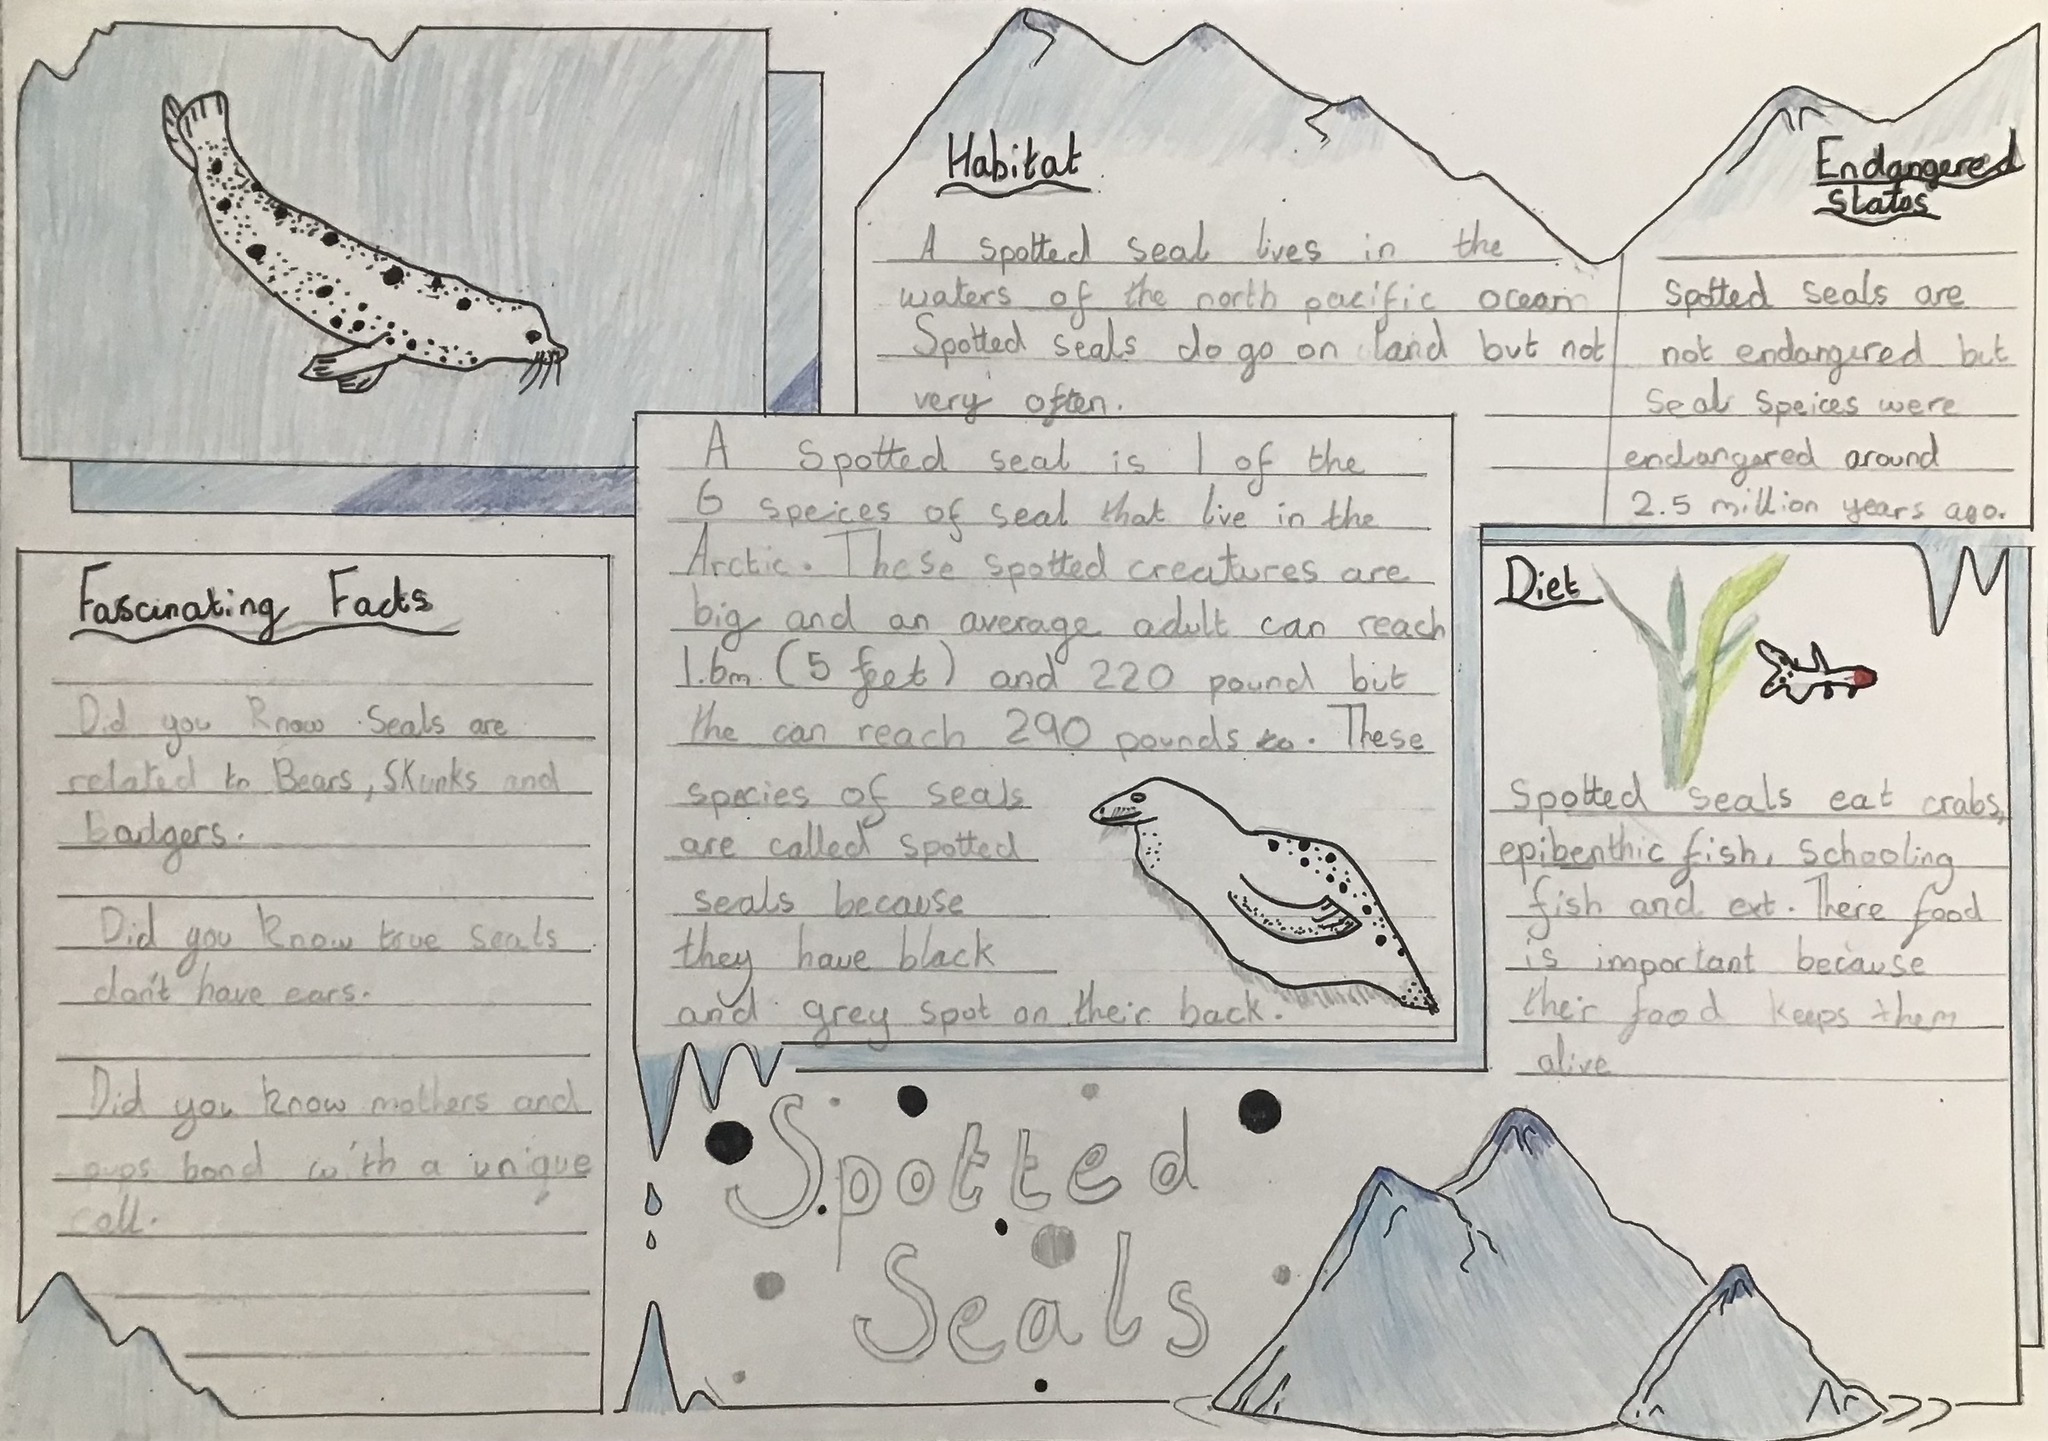 Habitat
A spotted seal lives in the
waters of the north pacific ocean
Spotted seals do go on land but not
very often.
Endangered
States
Spotted seals are
not endangered but
Seal Speices were
endangered around
2.5 million years ago.
A spotted seal is 1 of the
6 speices of seal that live in the
Arctic. These spotted creatures are
big and an average adult can reach
1.6m (5 feet) and 220 pound but
the can reach 290 pounds to. These
species of seals
are called spotted
seals because
they have black
and grey spot on their back.
Fascinating Facts
Did you know Seals are
related to Bears, Skunks and
badgers.
Did you know true seals
don't have ears.
Did you know mothers and
pups bond with a unique
call.
Diet
Spotted seals eat crabs,
epibenthic fish, schooling
fish and ext. There food
is important because
their food keeps them
alive
Spotted
Seals